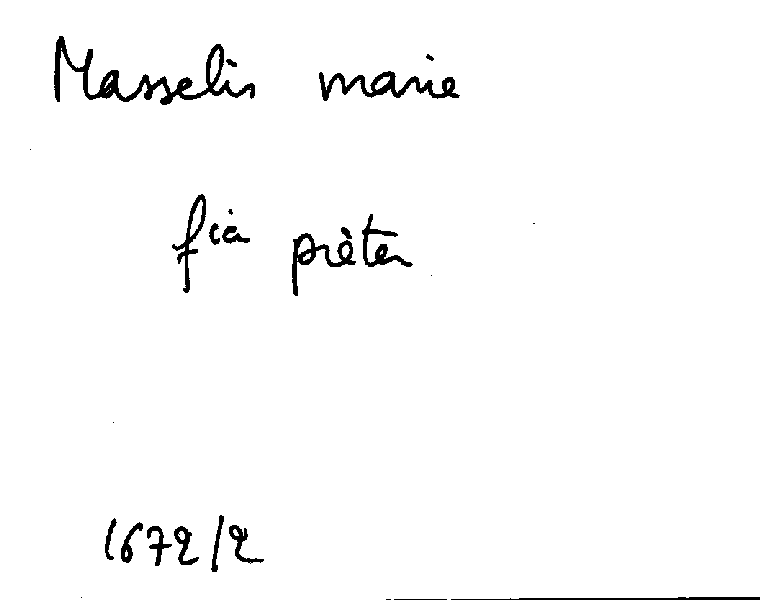 Masselis marie
fia pièter
1672/2